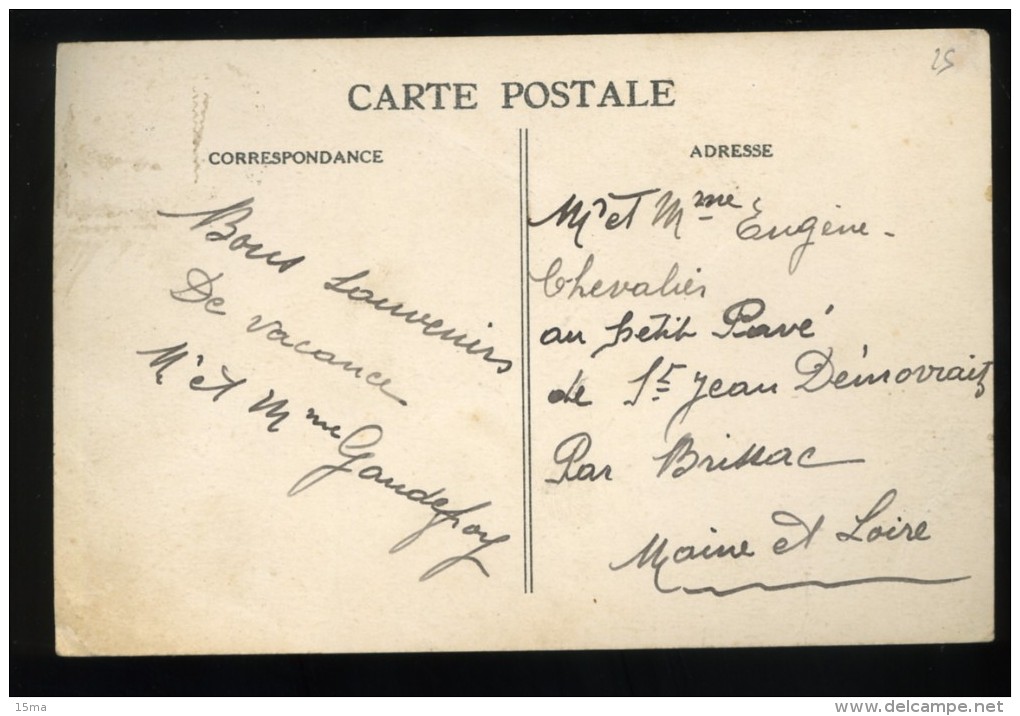 25
CARTE POSTALE
CORRESPONDANCE
ADRESSE
Bons souvenirs
De vacance
Mr et Mme Gaudefroy
Mr et Mme Eugène
Chevalier
au petit Pavé
de St Jean
Par Brissac
Maine et Loire
15ma
www.delcampe.net